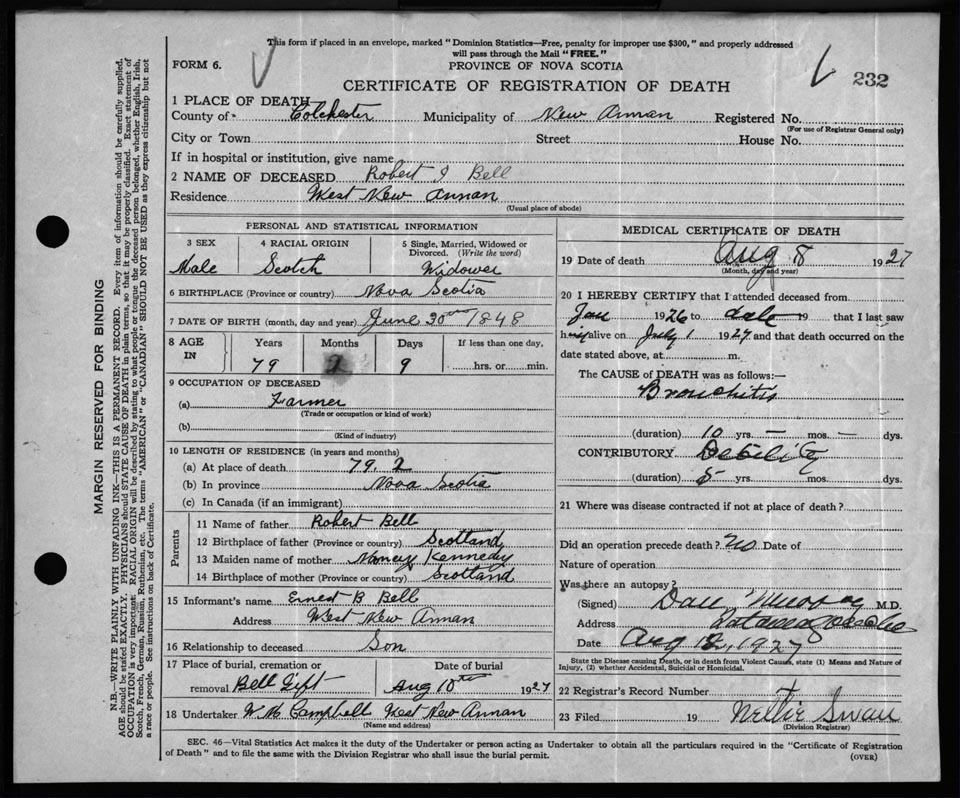 This form if placed in an envelope, marked "Dominion Statistics—Free, penalty for improper use $300," and properly addressed
will pass through the Mail "FREE."
FORM 6.
PROVINCE OF NOVA SCOTIA
232
CERTIFICATE OF REGISTRATION OF DEATH
1 PLACE OF DEATH
County of Colchester Municipality of New Annan Registered No.
(For use of Registrar General only)
City or Town Street House No.
If in hospital or institution, give name
2 NAME OF DECEASED Robert J Bell
Residence West New Annan
(Usual place of abode)
PERSONAL AND STATISTICAL INFORMATION
3 SEX 4 RACIAL ORIGIN 5 Single, Married, Widowed or Divorced. (Write the word)
Male Scotch Widower
6 BIRTHPLACE (Province or country) Nova Scotia
7 DATE OF BIRTH (month, day and year) June 30th 1848
8 AGE IN Years Months Days If less than one day,
79 2 9 hrs. or min.
9 OCCUPATION OF DECEASED
(a) Farmer
(Trade or occupation or kind of work)
(b)
(Kind of industry)
10 LENGTH OF RESIDENCE (in years and months)
(a) At place of death 79. 2
(b) In province Nova Scotia
(c) In Canada (if an immigrant)
Parents
11 Name of father Robert Bell
12 Birthplace of father (Province or country) Scotland
13 Maiden name of mother Nancy Kennedy
14 Birthplace of mother (Province or country) Scotland
15 Informant's name Ernest B Bell
Address West New Annan
16 Relationship to deceased Son
17 Place of burial, cremation or Date of burial
removal Bell Gift Aug 10th 1927
18 Undertaker W M Campbell West New Annan
(Name and address)
MEDICAL CERTIFICATE OF DEATH
19 Date of death Aug 8 1927
(Month, day and year)
20 I HEREBY CERTIFY that I attended deceased from
Jan 1926 to date 19 that I last saw
him alive on July 1 1927 and that death occurred on the
date stated above, at m.
The CAUSE of DEATH was as follows:—
Bronchitis
(duration) 10 yrs. — mos. — dys.
CONTRIBUTORY Debility
(duration) 5 yrs. mos. dys.
21 Where was disease contracted if not at place of death?
Did an operation precede death? No Date of
Nature of operation
Was there an autopsy?
(Signed) Dan Murray M.D.
Address Tatamagouche
Date Aug 12, 1927
State the Disease causing Death, or in death from Violent Causes, state (1) Means and Nature of
Injury, (2) whether Accidental, Suicidal or Homicidal.
22 Registrar's Record Number
23 Filed 19 Nettie Swan
(Division Registrar)
SEC. 46—Vital Statistics Act makes it the duty of the Undertaker or person acting as Undertaker to obtain all the particulars required in the "Certificate of Registration
of Death" and to file the same with the Division Registrar who shall issue the burial permit.
(OVER)
MARGIN RESERVED FOR BINDING
N.B.—WRITE PLAINLY WITH UNFADING INK—THIS IS A PERMANENT RECORD. Every item of information should be carefully supplied.
AGE should be stated EXACTLY. PHYSICIANS should STATE CAUSE OF DEATH in plain terms, so that it may be properly classified. Exact statement of
OCCUPATION is very important: RACIAL ORIGIN will be described by stating to what people or tongue the deceased person belonged, whether English, Irish,
Scotch, French, German, Russian, Ruthenian, etc. The terms "AMERICAN" or "CANADIAN" SHOULD NOT BE USED as they express citizenship but not
a race or people. See instructions on back of Certificate.